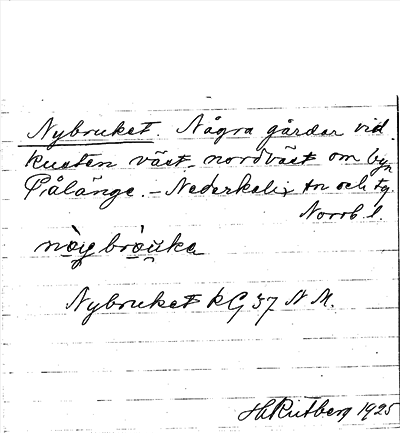 Nybruket. Några gårdar vid
kusten väst-nordväst om byn
Pålänge. – Nederkalix sn och tg.
Norrb. l.
nὸy brὸu̯ka
Nybruket kG 37 N M.
H Rutberg 1925